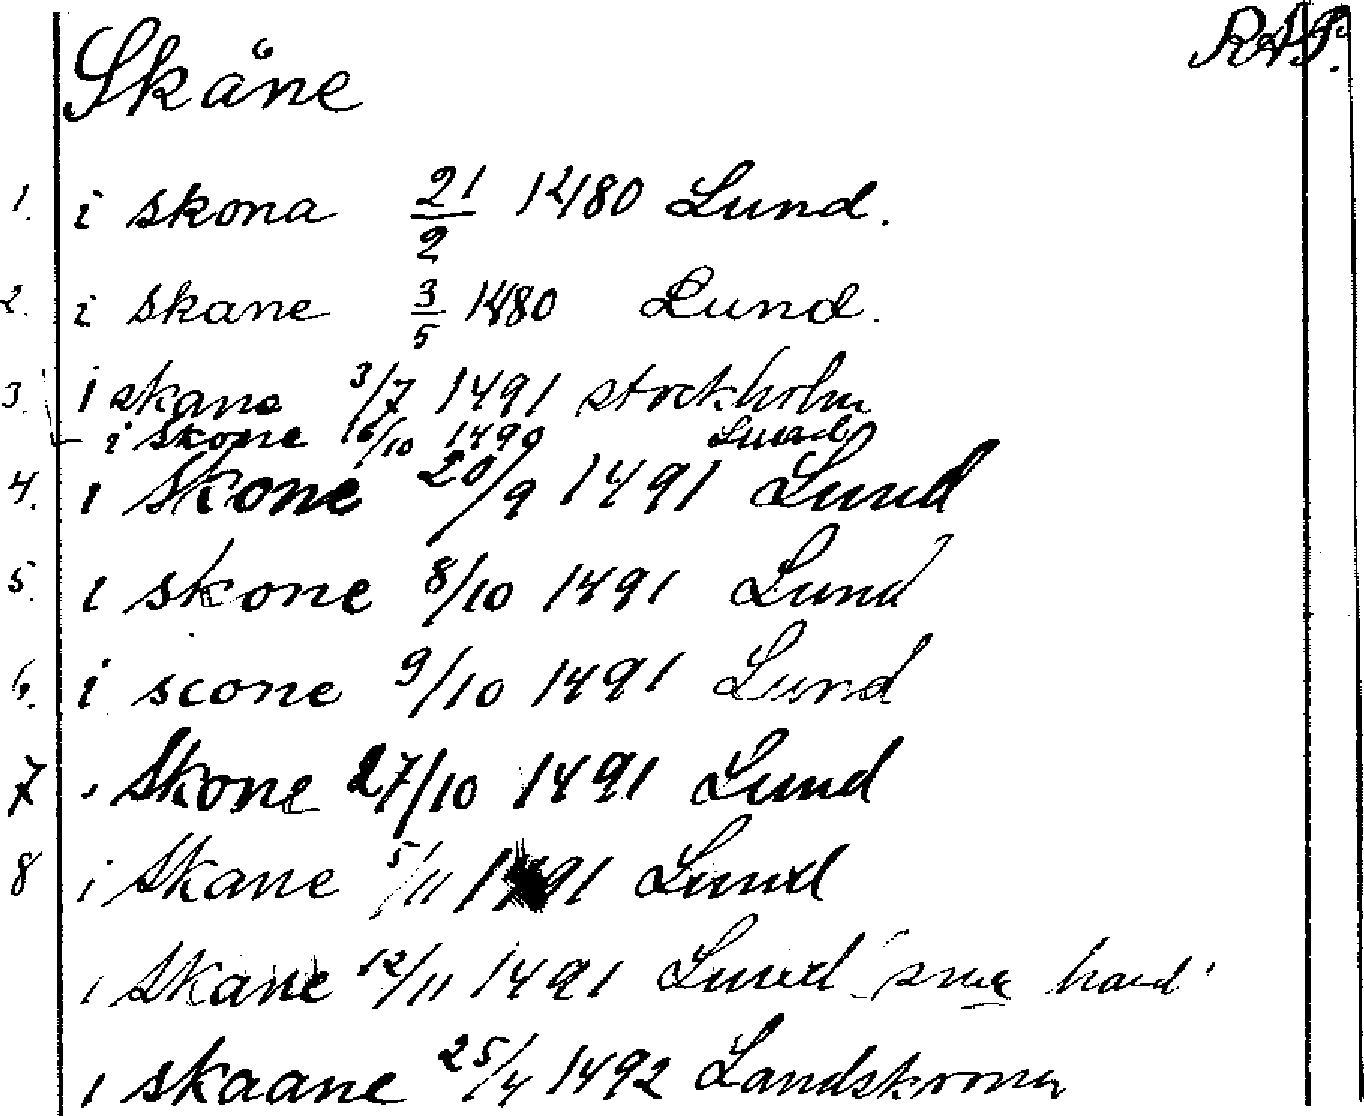 Skåne R.A.P.
1. i skona 21/2 1480 Lund.
2. i skane 3/5 1480 Lund.
3. i skane 3/7 1491 stockholm
i skone 16/10 1490 Lund
4. i skone 20/9 1491 Lund
5. i skone 8/10 1491 Lund
6. i scone 9/10 1491 Lund
7 i skone 27/10 1491 Lund
8 i skane 5/11 1491 Lund
i skane 12/11 1491 Lund hand
i skaane 25/4 1492 Landskrona